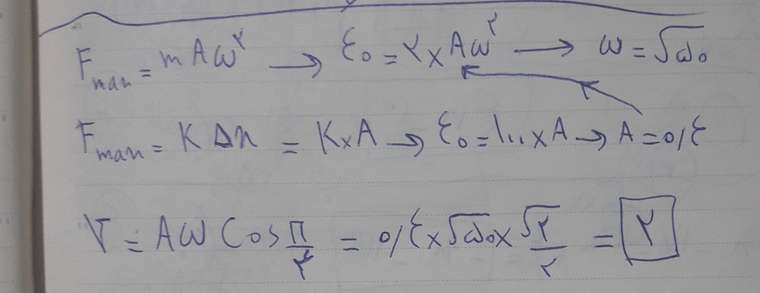 F_max = mAω² → ۴۰ = ۲ × Aω² → ω = √۵۰
F_max = KΔx = K×A → ۴۰ = ۱۰۰ × A → A = ۰/۴
V = Aω Cos π/۴ = ۰/۴ × √۵۰ × √۲/۲ = ۲